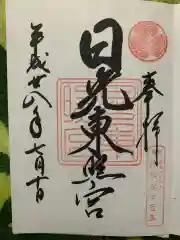 奉拝
日光東照宮
平成廿八年七月十日